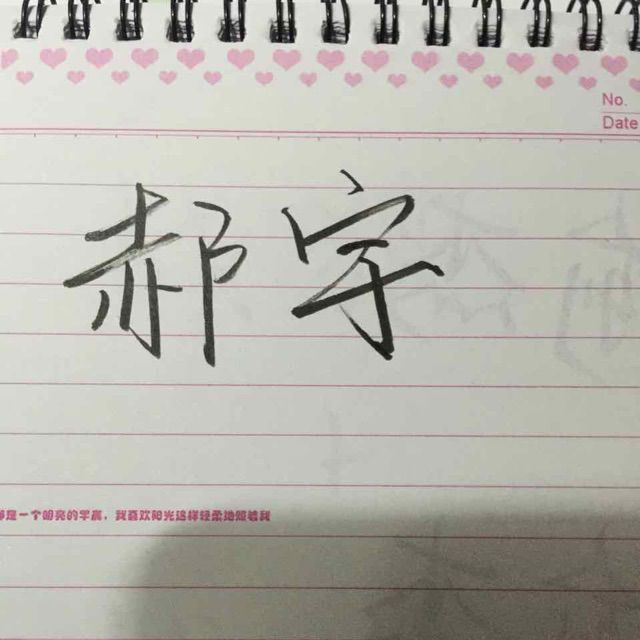 No.
Date
郝宇
一个明亮的字眼，我喜欢阳光这样轻柔地照着我